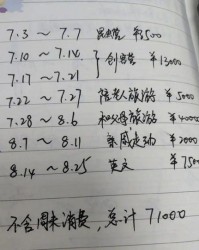 7.3 ~ 7.7 昆虫营 ¥3500
7.10 ~ 7.14 } 创客营 ¥13000
7.17 ~ 7.21
7.22 ~ 7.27 陪老人旅游 ¥5000
7.28 ~ 8.6 和父母旅游 ¥4000
8.7 ~ 8.11 ¥2000
8.14 ~ 8.25 英文 ¥7500
不含周末消费,总计71000